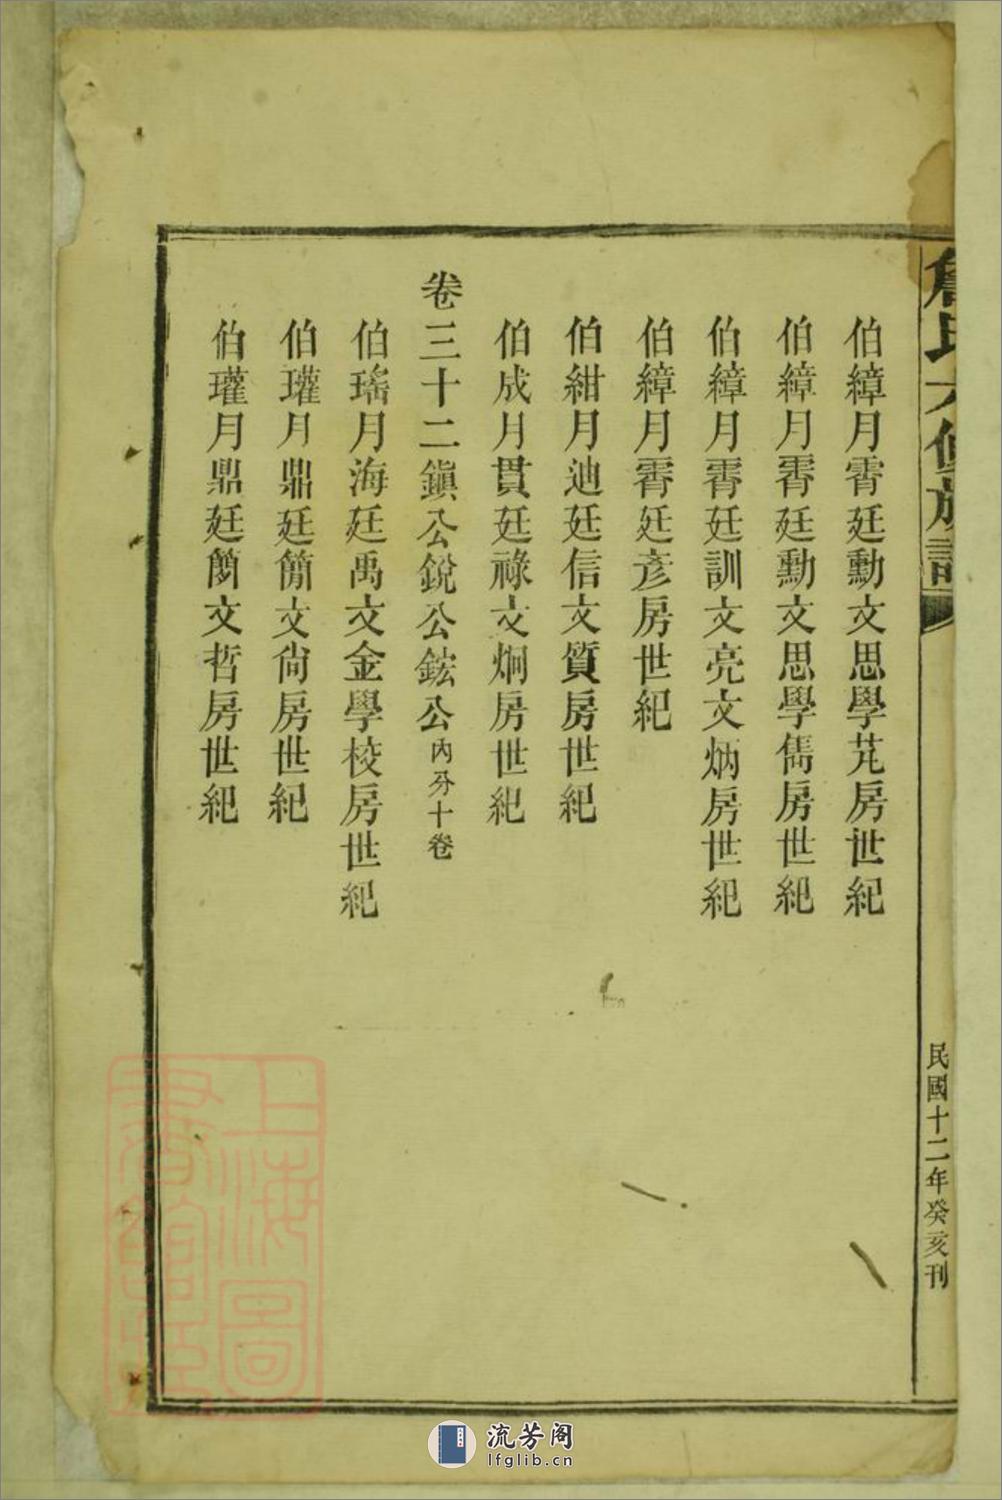 詹氏六修族譜
民國十二年癸亥刊
伯緯月霄廷勳文思學芃房世紀
伯緯月霄廷勳文思學儁房世紀
伯緯月霄廷訓文亮文炳房世紀
伯緯月霄廷彥房世紀
伯紺月迪廷信文質房世紀
伯成月貫廷祿文炯房世紀
卷三十二鎮公銳公鋐公內分十卷
伯瑤月海廷禹文金學校房世紀
伯瓘月鼎廷簡文尙房世紀
伯瓘月鼎廷簡文哲房世紀
上海圖書館藏
流芳阁
lfglib.cn